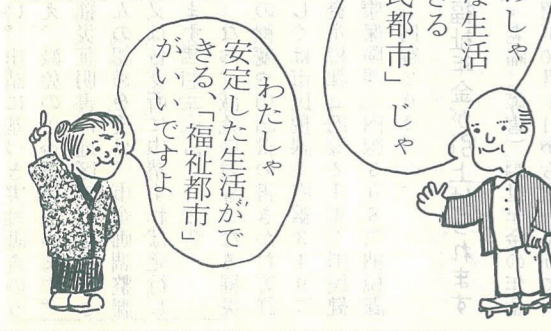 わしゃ
な生活
きる
民都市」じゃ
わたしゃ
安定した生活がで
きる、「福祉都市」
がいいですよ